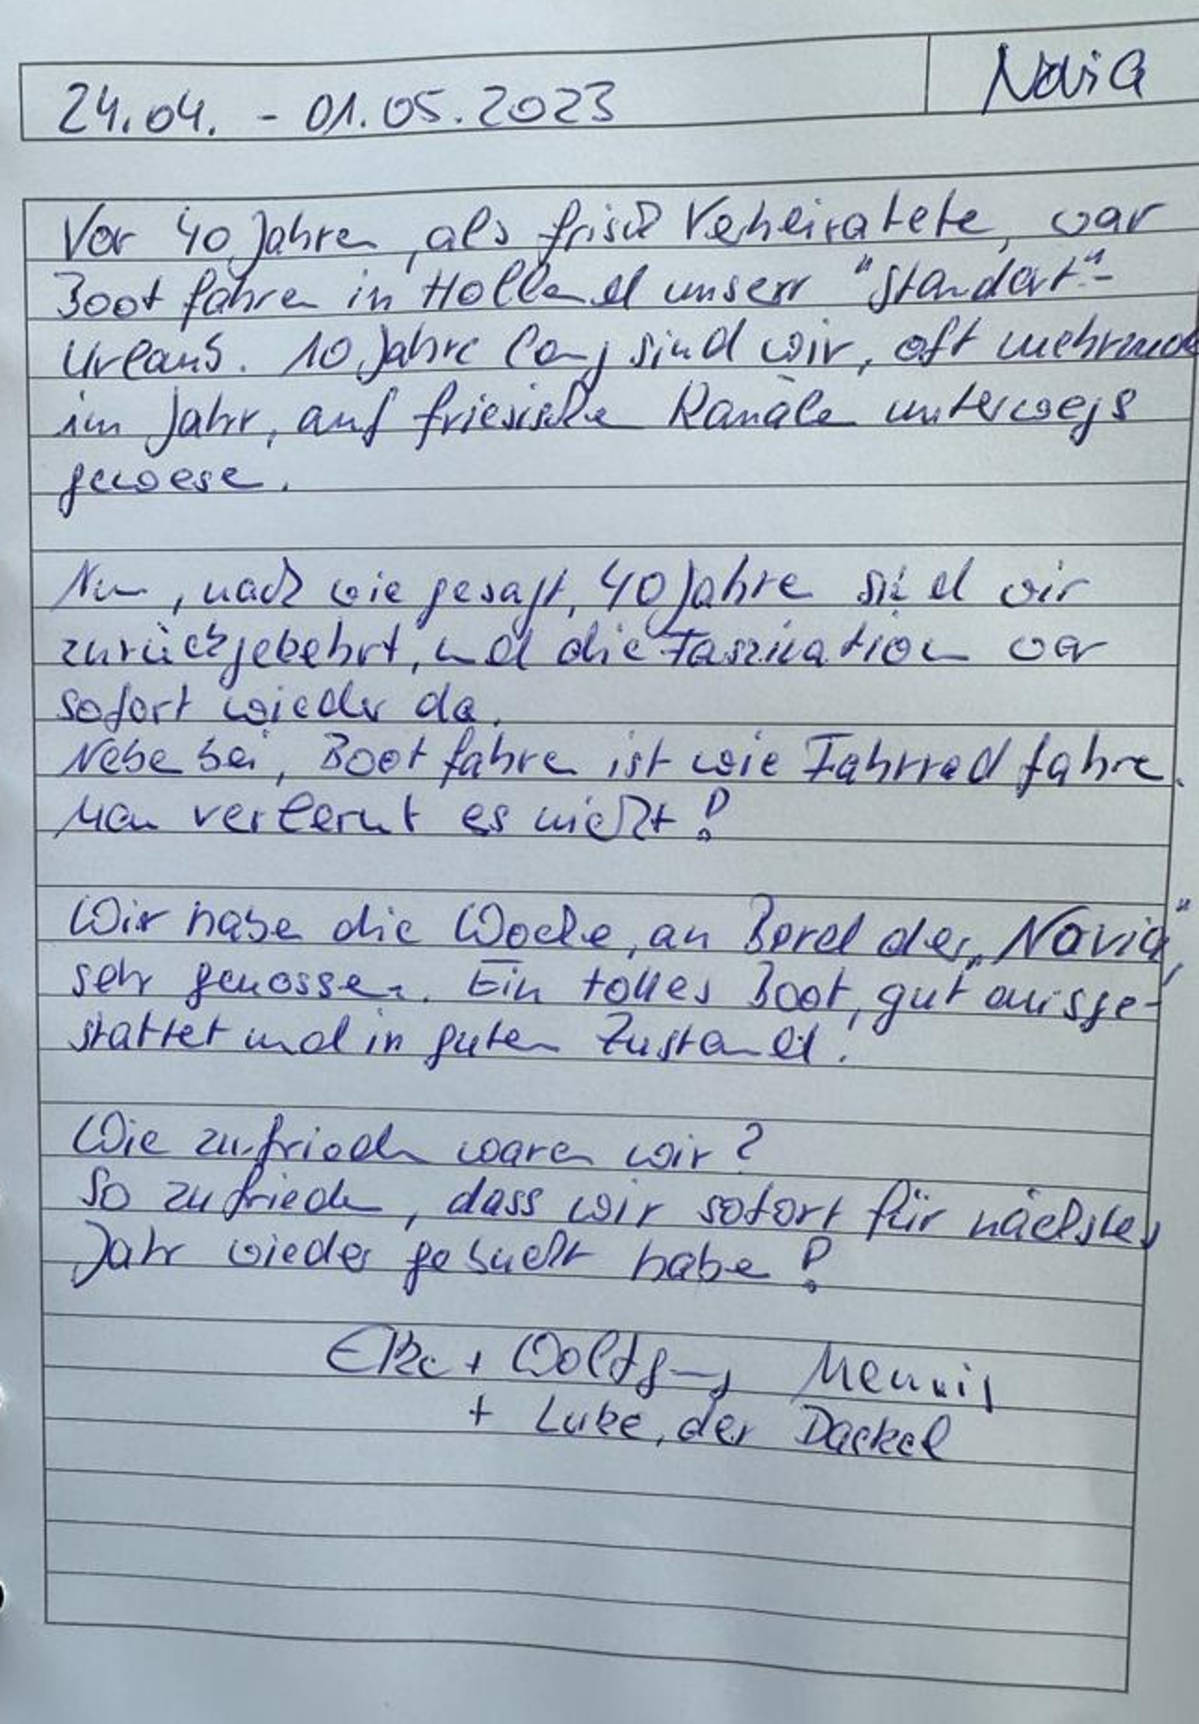 24.04. - 01.05.2023
Navia
Vor 40 Jahren, als frisch Verheiratete, war
Boot fahren in Holland unser "Standart"-
Urlaub. 10 Jahre lang sind wir, oft mehrmals
im Jahr, auf friesische Kanäle unterwegs
gewese.
Nun, nach wie gesagt, 40 Jahre sind wir
zurückgekehrt, und die Faszination war
sofort wieder da.
Nebe bei, Boot fahre ist wie Fahrrad fahre.
Man verlernt es nicht!
Wir habe die Woche, an Bord der „Navia",
sehr genossen. Ein tolles Boot, gut ausge-
stattet und in guten Zustand.
Wie zufrieden waren wir?
So zufrieden, dass wir sofort für nächstes
Jahr wieder gebucht habe!
Elke + Wolfgang
+ Luke, der Dackel